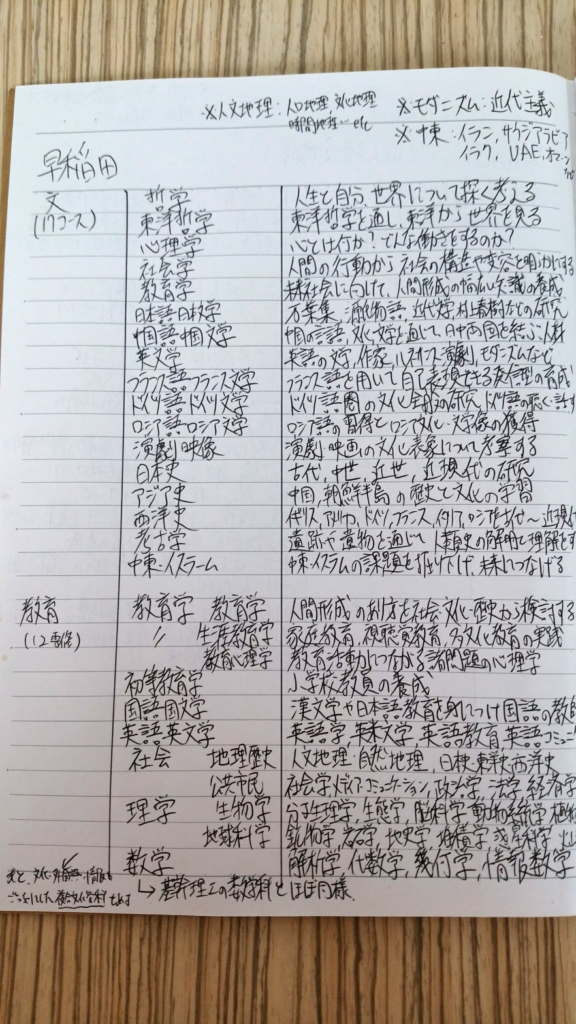 ※人文地理:人口地理、文化地理
時間地理… etc
※モダニズム:近代主義
※中東:イラン、サウジアラビア
イラク、UAE、オマーン
早稲田
文 哲学 人生と自分、世界について深く考える
(17コース) 東洋哲学 東洋哲学を通し、東洋から世界を見る
心理学 心とは何か?どんな働きをするのか?
社会学 人間の行動から社会の構造や変容を明らかにする
教育学 未来社会に向けて、人間形成の幅広い知識の養成
日本語日本文学 万葉集、源氏物語、近代文学、村上春樹などの研究
中国語中国文学 中国の言語、文化、文学を通じて、日中両国を結ぶ人材
英文学 英語の文学、作家、ルネサンス演劇、モダニズムなど
フランス語フランス文学 フランス語を用いて自己表現できる発信型の育成
ドイツ語ドイツ文学 ドイツ語圏の文化全般の研究、ドイツ語の聴く話す
ロシア語ロシア文学 ロシア語の習得とロシア文化・文学像の獲得
演劇映像 演劇、映画の文化表象について考察する
日本史 古代、中世、近世、近現代の研究
アジア史 中国、朝鮮半島の歴史と文化の学習
西洋史 イギリス、アメリカ、ドイツ、フランス、イタリア、ロシアを古代〜近現代
考古学 遺跡や遺物を通じて人類史の解明と理解をす
中東・イスラーム 中東・イスラムの課題を掘り下げ、未来につなげる
教育 教育学 教育学 人間形成のあり方を社会・文化・歴史から検討する
(12専修) 〃 生涯教育学 家庭教育、視聴覚教育、多文化教育の実践
教育心理学 教育活動につながる諸問題の心理学
初等教育学 小学校教員の養成
国語国文学 漢文学や日本語教育を身につけ国語の教師
英語英文学 英語学、英米文学、英語教育、英語コミュニケ
社会 地理歴史 人文地理・自然地理、日本史・東洋史・西洋史
公共市民 社会学、メディア・コミュニケーション、政治学、法学、経済学
理学 生物学 分子生理学、生態学、脳科学、動物系統学、植物
地球科学 鉱物学、岩石学、地史学、堆積学、惑星科学、火山
数学 解析学、代数学、幾何学、情報数学
↳基幹理工の数学科とほぼ同様。
あと、文化・
複合文化学科もある